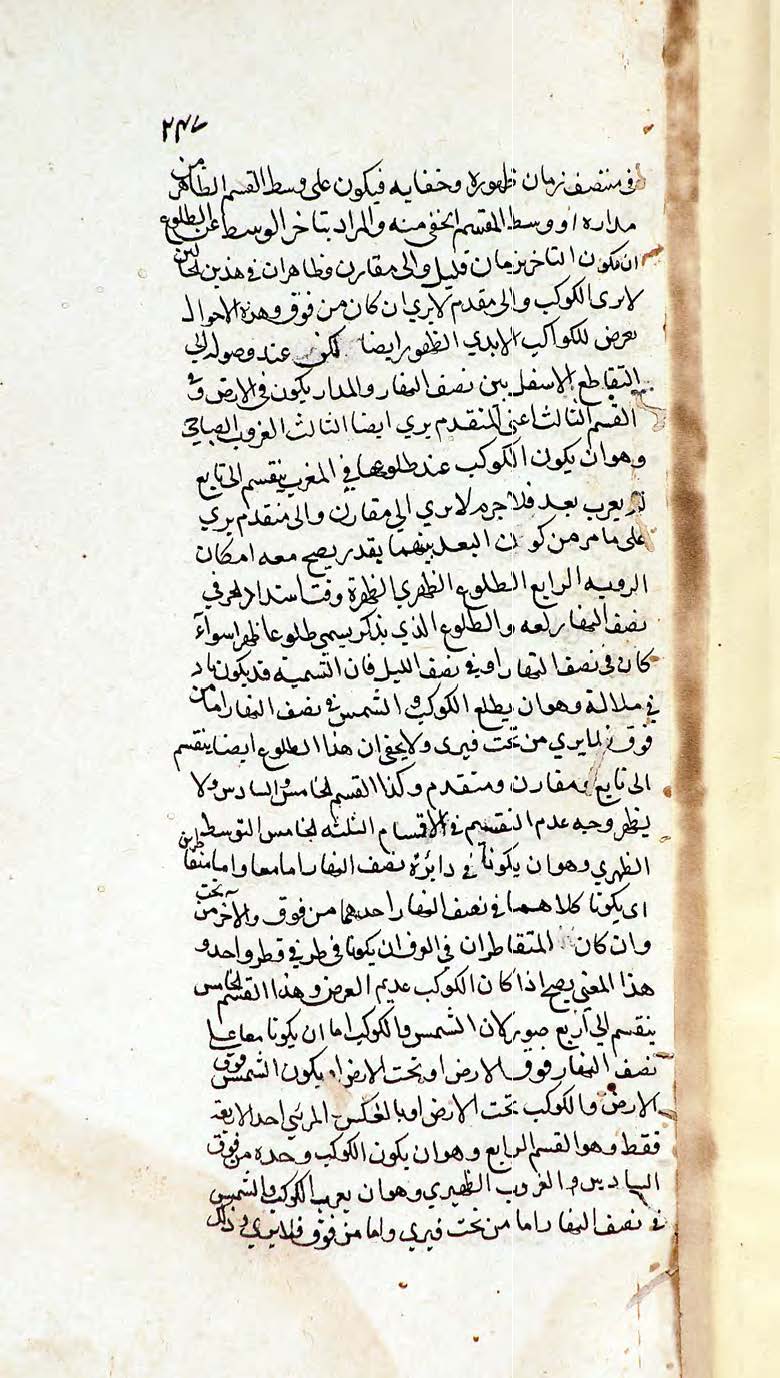 ٢٤٧
في منتصف زمان ظهوره وخفايه فيكون على وسط القسم الظاهر من
مداره او وسط القسم الخفي منه والمراد بتاخر الوسط عن الطلوع
ان يكون التاخر بزمان قليل والى مقارن وظاهر ان في هذين الحالين
لا يرى الكوكب والى مقدم لا يري ان كان من فوق وهذه الاحوال
تعرض للكواكب الابدي الظهور ايضا لكن عند وصوله الى
التقاطع الاسفل بين نصف النهار والمدار يكون في الارض وفي
القسم الثالث اعني المتقدم يري ايضا الثالث الغروب الصباحي
وهو ان يكون الكوكب عند طلوعها في المغرب ينقسم الى تابع
يغرب بعد فلا جرم لا يري الي مقارن والى متقدم يري
على ما مر من كون البعد بينهما بقدر يصح معه امكان
الرويه الرابع الطلوع الظهري الظهرة وقت اشتداد الحر في
نصف النهار لغه والطلوع الذي يذكر يسمى طلوعا ظهرا سوآء
كان في نصف النهار او في نصف الليل فان التسمية قد يكون باد
في ملالة وهو ان يطلع الكوكب و الشمس في نصف النهار اما من
فوق فلا يري من تحت فيرى ولا يخفى ان هذا الطلوع ايضا ينقسم
الى تابع ومقارن ومتقدم وكذا القسم الخامس والسادس ولا
يظهر وجه عدم التقسيم في الاقسام الثلثه الخامس التوسط
الظهري وهو ان يكونا في دائرة نصف النهار اما معا واما متقاطرين
اى يكونا كلاهما في نصف النهار احدهما من فوق والآخر من تحت
وان كان المتقاطران في العرف ان يكونا في طرفي قطر واحد و
هذا المعني يصح اذا كان الكوكب عديم العرض وهذا القسم الخامس
ينقسم الى اربع صور لان الشمس والكوكب اما ان يكونا معا على
نصف النهار فوق الارض او تحت الارض او يكون الشمس فوق
الارض والكوكب تحت الارض او بالعكس المرئي احد الاربعة
فقط وهو القسم الرابع وهو ان يكون الكوكب وحده من فوق
السادس الغروب الظهيري وهو ان يغرب الكوكب والشمس
في نصف النهار اما من تحت فيري واما من فوق فلا يري وذلك